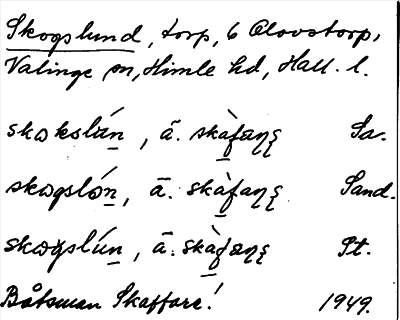 Skogslund, torp, 6 Olovstorp,
Valinge sn, Himle hd, Hall. l.
skɷkslún, ā. skàfaŋę Sa.
skɷgslón, ā. skàfaŋę Sand.
skɷgslún, ā. skàfaŋę St.
Båtsman Skaffare! 1949.